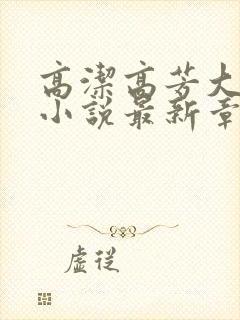 高潔高芳大
小說最新章
虛從